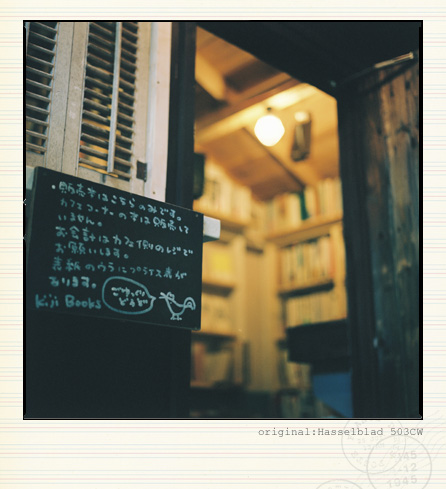 ・販売本はこちらのみです。
カフェコーナーの本は販売して
いません。
お会計はカフェ側のレジで
お願いします。
表紙のウラにプライス表が
あります。
Kiji Books
ごゆっくり
どうぞ
original:Hasselblad 503CW
1945